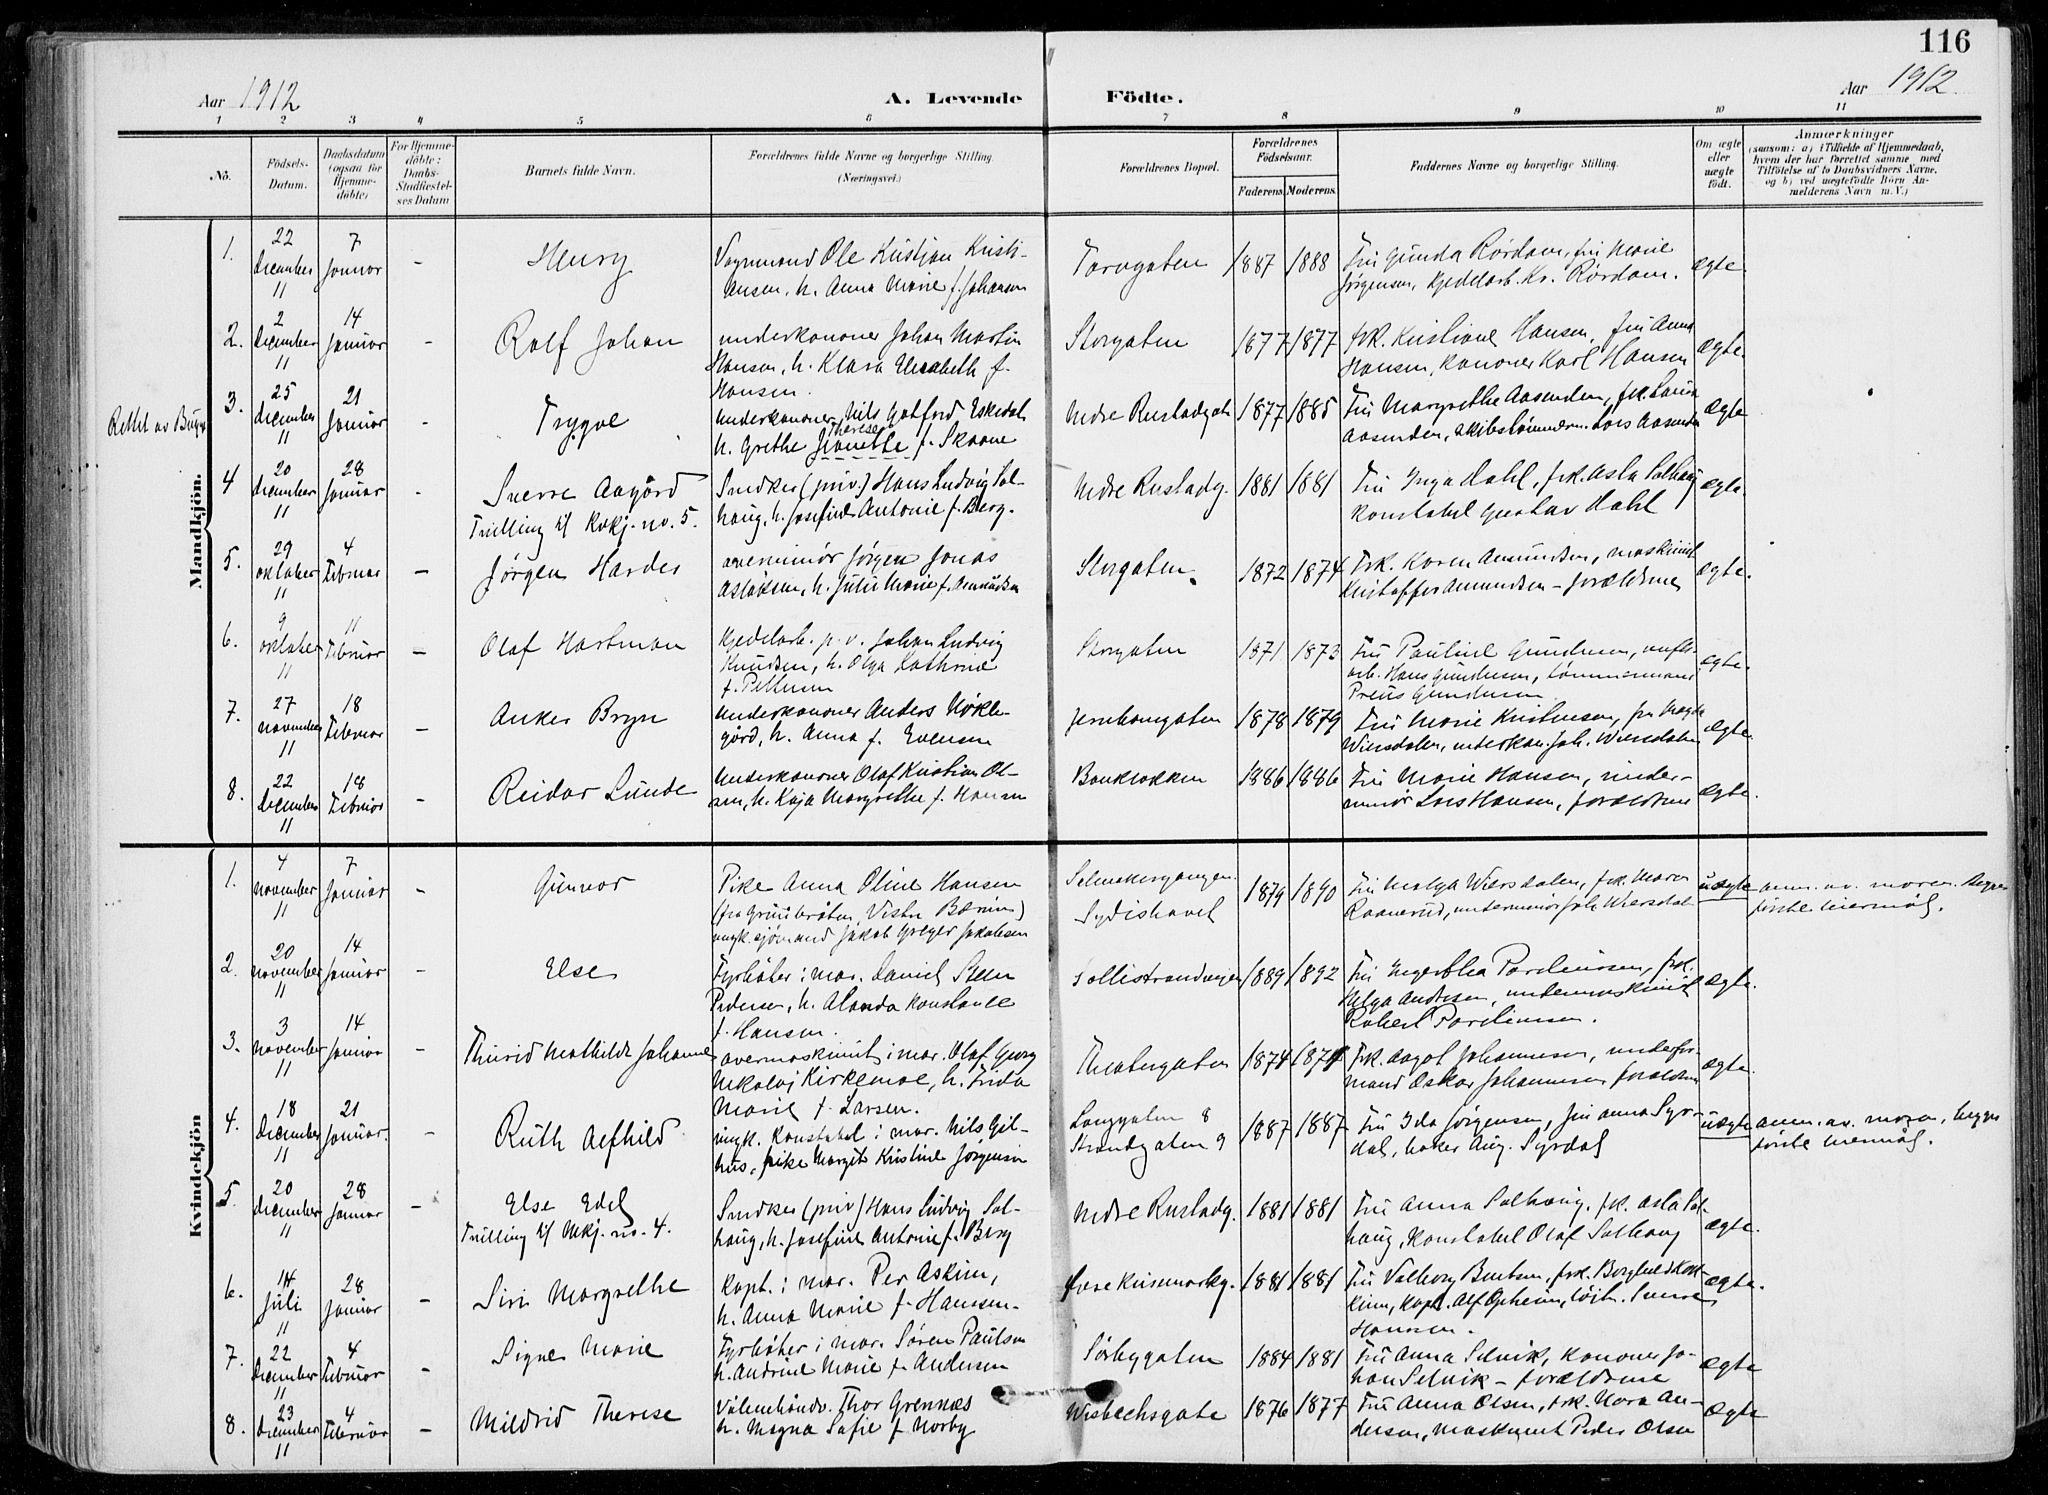 116
Aar 1912
A. Levende
Födte.
Aar 1912.
1 2 3 4 5 6 7 8 9 10 11
No.
Födsels-
Datum.
Daabsdatum
(ogsaa för
Hjemme-
döbte)
For Hjemme-
döbte:
Daabs-
Stadfæstel-
ses Datum
Barnets fulde Navn.
Forældrenes fulde Navne og borgerlige Stilling.
(Næringsvei.)
Forældrenes Bopæl.
Forældrenes
Födselsaar.
Faderens. Moderens.
Faddernes Navne og borgerlige Stilling.
Om ægte
eller
uægte
födt.
Anmærkninger
(saasom: a) i Tilfælde af Hjemmedaab,
hvem der har forrettet samme, med
Tilföielse af to Daabsvidners Navne,
og b) ved uægtefödte Börn An-
melderens Navn m. V.)
Mandkjön.
1. 22 December 11
7 Januar
-
Henry
Vognmand Ole Kristian Kristi-
ansen, h. Anna Marie f. Johansen
Tarvgaten
1887 1888
Fru Gunda Rørdam, fru Marie
Jørgensen, Kjedelarb. Kr. Rørdam.
Ægte.
2. 2 December 11
14 Januar
-
Rolf Johan
underkanoner Johan Martin
Hansen, h. Klara Elisabeth f.
Hansen.
Storgaten
1877 1877
frk. Kristiane Hansen, fru Anna
Hansen, kanoner Karl Hansen
Ægte.
3. 25 December 11
21 Januar
Trygve
Underkanoner Nils Gotfred Eskedal
Therese
h. Grethe Jeanette f. Skaane
Nedre Rustadgate
1877 1885
Fru Margrethe Aasenden, frk. Laura
Aasenden, skibstømmerm. Lars Aasenden
Ægte
4 20 December 11
28 Januar
-
Sverre Aagård
Tvilling t/ Kvkj. no. 5.
Snedker (priv.) Hans Ludvig Sol-
haug, h. Josefine Antonie f. Berg.
Nedre Rustadg.
1881 1881
Fru Inga Dahl, frk. Asta Solhaug
konstabel Gustav Dahl
Ægte.
5. 29 oktober 11
4 Februar
-
Jørgen Harder
overminør Jørgen Jonas
Aslaksen, h. Juli Marie f. Amundsen
Storgaten
1872 1874
Frk. Karen Amundsen, maskinist
Kristoffer Amundsen - forældrene
Ægte.
6. 9 oktober 11
11 Februar
-
Olaf Hartman
Kjedelarb. p. v. Johan Ludvig
Knudsen, h. Olga Kathrine
f. Pettersen
Storgaten
1871 1873
Fru Pauline Gundersen,
arb. Hans Gundersen, tømmermand
Preus Gundersen
Ægte.
7. 27 november 11
18 Februar
-
Anker Bryn
Underkanoner Anders Nøkle-
gård, h. Anna f. Evensen
Jernbanegaten
1878 1879
Fru Marie Kristensen, fru Magda
Wiersdalen, underkan. Joh. Wiersdalen
Ægte
8. 22 December 11
18 Februar
-
Reidar Lunde
Underkanoner Olaf Kristian Ol-
sen, h. Kaja Margrethe f. Hansen
Bankløkken
1886 1886
Fru Marie Hansen, under-
minør Lars Hansen, forældrene
Ægte.
Kvindekjön
1. 4 november 11
7 Januar
-
Gunvor
Pike Anna Oline Hansen
(fra Vestre Bærum)
ungk. sjømand Jakob Greger Jakobsen
Sydishavet
1879 1890
Fru Helga Wiersdalen, frk. Maren
Raanerud, underminør Joh. Wiersdal
uægte
anm. av. moren. Begges
første leiermål.
2. 20 november 11
14 Januar
-
Else
Fyrbøter i mar. Daniel Steen
Pedersen, h. Alanda Konstance
f. Hansen.
Tollistrandveien
1889 1892
Fru Ingertha Paulinsen, frk.
Helga Andersen, undermaskinist
Robert Paulinsen.
Ægte.
3. 3 november 11
14 Januar
-
Thurid Mathilde Johanne
overmaskinist i mar. Olaf Georg
Nikolai Kirkemoe, h. Frida
Marie f. Larsen.
Theatergaten
1874 1874
Frk. Aagot Johannesen, underfor-
mand Oskar Johannesen forældrene
Ægte.
4. 18 December 11
21 Januar.
-
Ruth Alfhild
ungk. konstabel i mar. Nils Gil-
hus, pike Margit Kristine Jørgensen
Langgaten 8
Strandgaten 9
1887 1887
Fru Ida Jørgensen, fru Anna Syr-
dal, baker Aug. Syrdal
uægte
anm. av. moren, begges
første leiermål.
5 20 December 11
28 Januar
-
Else Edel
Tvilling t/ Mkj. no. 4.
Snedker (priv) Hans Ludvig Sol-
haug, h. Josefine Antonie f. Berg
Nedre Rustadg.
1881 1881
Fru Anna Solhaug, frk. Asta Sol-
haug, Konstabel Olaf Solhaug
Ægte.
6. 14 Juli 11
28 Januar
-
Siri Margrethe
Kapt. i mar. Per Askim,
h. Anna Marie f. Hanssen.
Øvre Keisemarkg.
1881 1881
Fru Valborg Bentsen, frk. Borghild
Kapt. Alf Opheim, løjt. Sverre
Hanssen.
Ægte.
7. 22 December 11
4 Februar
-
Signe Marie
Fyrbøter i mar. Søren Paulsen
h. Andrine Marie f. Andersen
Sørbygaten
1884 1881
Fru Anna Selvik, kanoner Jo-
han Selvik - forældrene
Ægte
8. 23 December 11
4 Februar
-
Mildrid Therese
Thor Grennæs
h. Magna Sofie f Norby
Wisbechsgate
1876 1877
Fru Anna Olsen, frk. Nora An-
dersen, maskinist Peder Olsen
Ægte